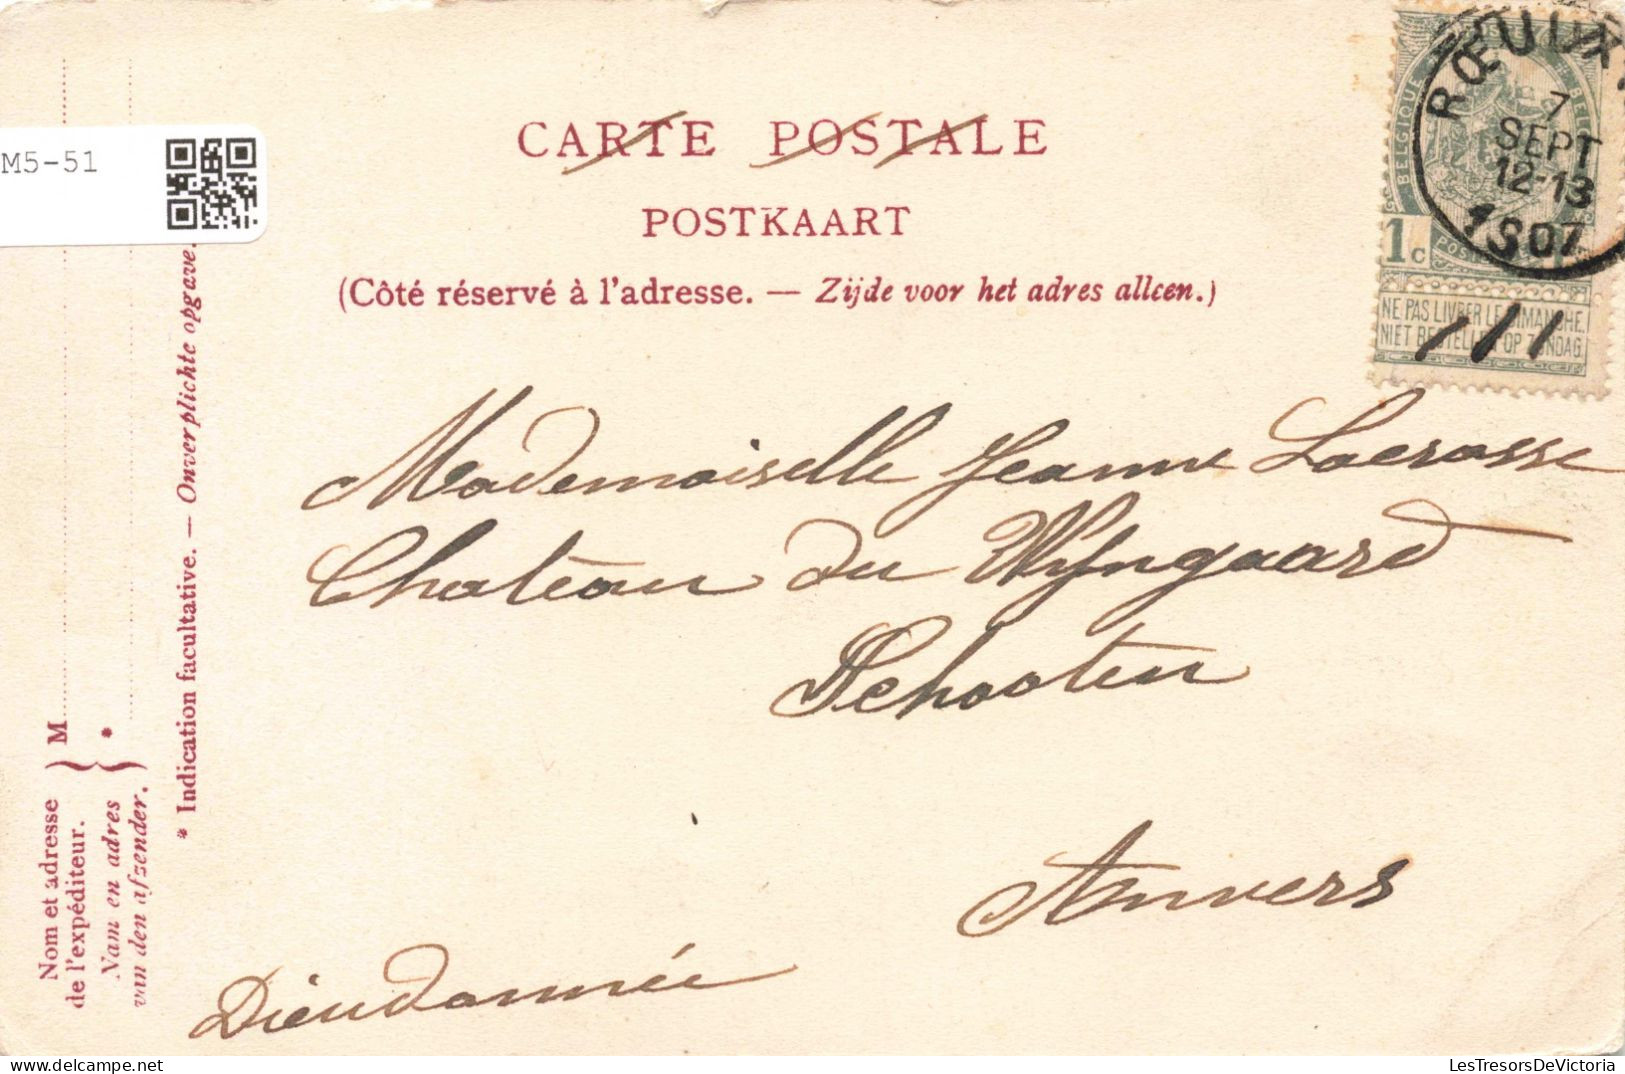 M5-51
CARTE POSTALE
POSTKAART
(Côté réservé à l'adresse. — Zijde voor het adres alleen.)
RŒULX
7
SEPT
12-13
1907
BELGIQUE
1c
NE PAS LIVRER LE DIMANCHE.
NIET BESTELLEN OP ZONDAG.
Mademoiselle Jeanne Lacrosse
Château du Wyngaard
Schooten
Anvers
Dieudonnée
Nom et adresse
de l'expéditeur.
Nam en adres
van den afzender.
M
*
* Indication facultative. — Onverplichte opgave.
LesTresorsDeVictoria